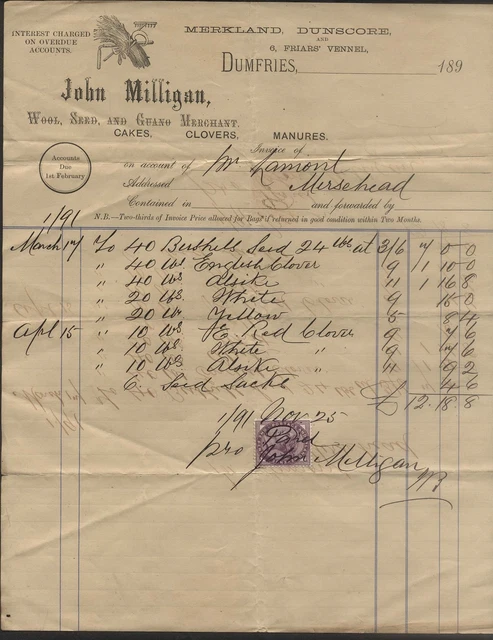 INTEREST CHARGED
ON OVERDUE
ACCOUNTS.
MERKLAND, DUNSCORE,
AND
6, FRIARS' VENNEL,
DUMFRIES, 189
John Milligan,
WOOL, SEED, AND GUANO MERCHANT.
CAKES, CLOVERS, MANURES.
Accounts
Due
1st February
Invoice of
on account of Mr Lamont
Addressed Mersehead
Contained in and forwarded by
N.B.—Two-thirds of Invoice Price allowed for Bags if returned in good condition within Two Months.
1891
March 17 To 40 Bushels Seed 24 lbs at 3/6 7 0 0
" 40 lbs English Clover 9 1 10 0
" 40 lbs Alsike 11 1 16 8
" 20 lbs White 9 15 0
" 20 lbs Yellow 5 8 4
Apl 15 " 10 lbs E. Red Clover 9 7 6
" 10 lbs White " 9 7 6
" 10 lbs Alsike " 11 9 2
6 Seed Sacks 4 6
£ 12 18 8
1891 Nov 25
Paid
pro John Milligan